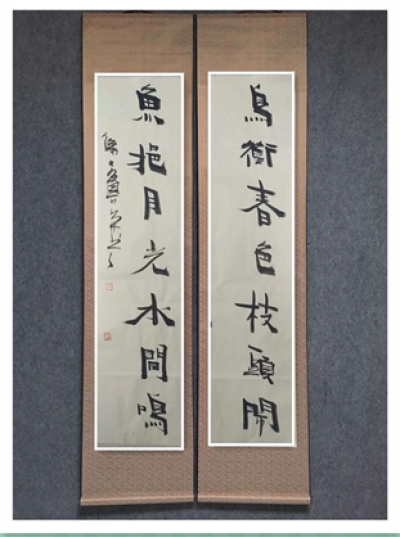 鳥銜春色枝頭鬧
魚抱月光水間鳴